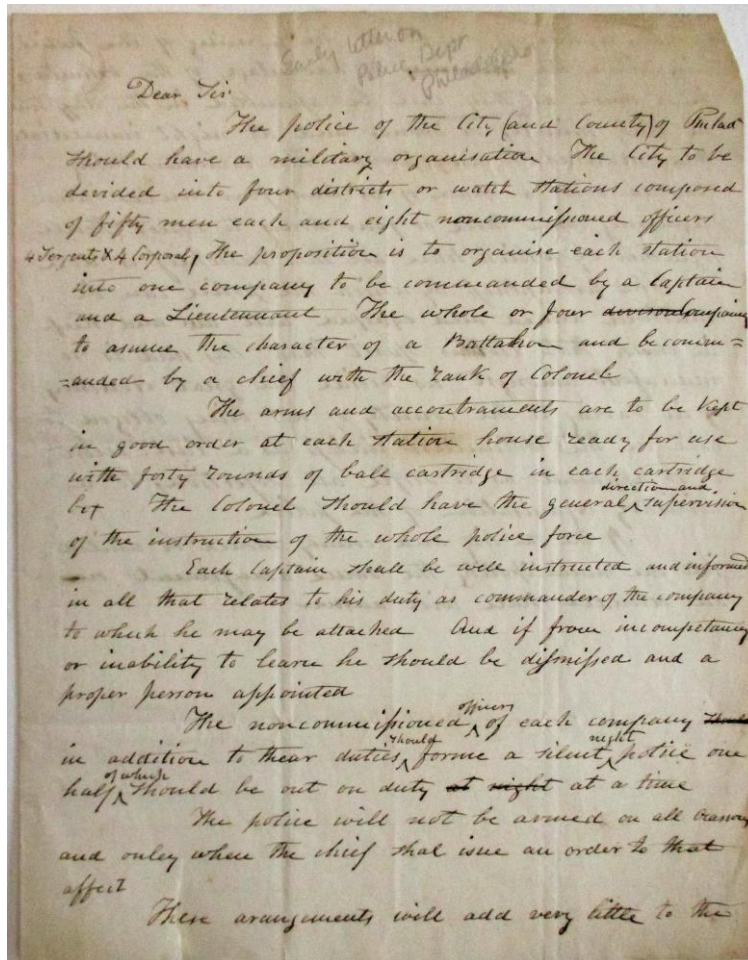 Early letter on
Police Dept
Philadelphia
Dear Sir
The police of the City (and County) of Philad
should have a military organisation The City to be
devided into four districts or watch stations composed
of fifty men each and eight noncommissioned officers
4 Serjeants & 4 Corporals, The proposition is to organise each station
into one company to be commanded by a Captain
and a Lieutennant The whole or four companies
to assume the character of a Battalion and be comm=
=anded by a chief with the rank of Colonel
The arms and accoutraments are to be Kept
in good order at each station house ready for use
with forty rounds of ball cartridge in each cartridge
box The Colonel should have the general direction and supervision
of the instruction of the whole police force
Each Captain shall be well instructed and informed
in all that relates to his duty as commander of the company
to which he may be attached And if from incompetancy
or inability to learn he should be dismissed and a
proper person appointed
The noncommissioned officers of each company should
in addition to thear duties should forme a silent night police one
half of which should be out on duty at night at a time
The police will not be armed on all occasions
and onley when the chief shal isue an order to that
affect
These arangements will add very little to the